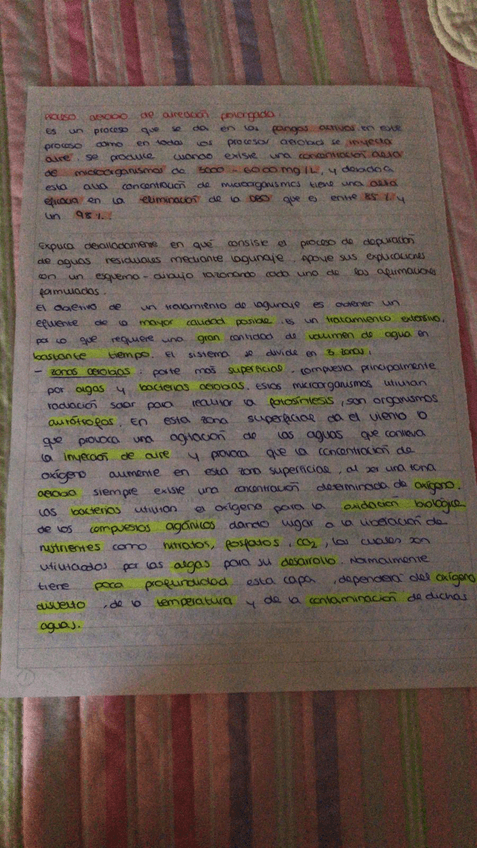 Proceso aerobio de aireación prolongada
Es un proceso que se da en los fangos activos. en este
proceso como en todos los procesos aerobios se inyecta
aire. se produce cuando existe una concentración alta
de microorganismos de 3000 - 6000 mg/L, y debido a
esta alta concentración de microorganismos tiene una alta
eficacia en la eliminación de la DBO que es entre 85% y
un 95%.
Explica detalladamente en qué consiste el proceso de depuración
de aguas residuales mediante lagunaje. Apoye sus explicaciones
con un esquema-dibujo razonando cada una de las afirmaciones
formuladas.
El objetivo de un tratamiento de lagunaje es obtener un
efluente de la mayor calidad posible. es un tratamiento extensivo,
por lo que requiere una gran cantidad de volumen de agua en
bastante tiempo. el sistema se divide en 3 zonas:
- zonas aerobias: parte más superficial. compuesta principalmente
por algas y bacterias aerobias. estos microorganismos utilizan
radiación solar para realizar la fotosíntesis, son organismos
autótrofos. En esta zona superficial da el viento lo
que provoca una agitación de las aguas que conlleva
la inyección de aire y provoca que la concentración de
oxígeno aumente en esta zona superficial, al ser una zona
aerobia siempre existe una concentración determinada de oxígeno.
Las bacterias utilizan el oxígeno para la oxidación biológica
de los compuestos orgánicos dando lugar a la liberación de
nutrientes como nitratos, fosfatos, CO2, los cuales son
utilizados por las algas para su desarrollo. Normalmente
tiene poca profundidad esta capa, dependerá del oxígeno
disuelto, de la temperatura y de la contaminación de dichas
aguas.